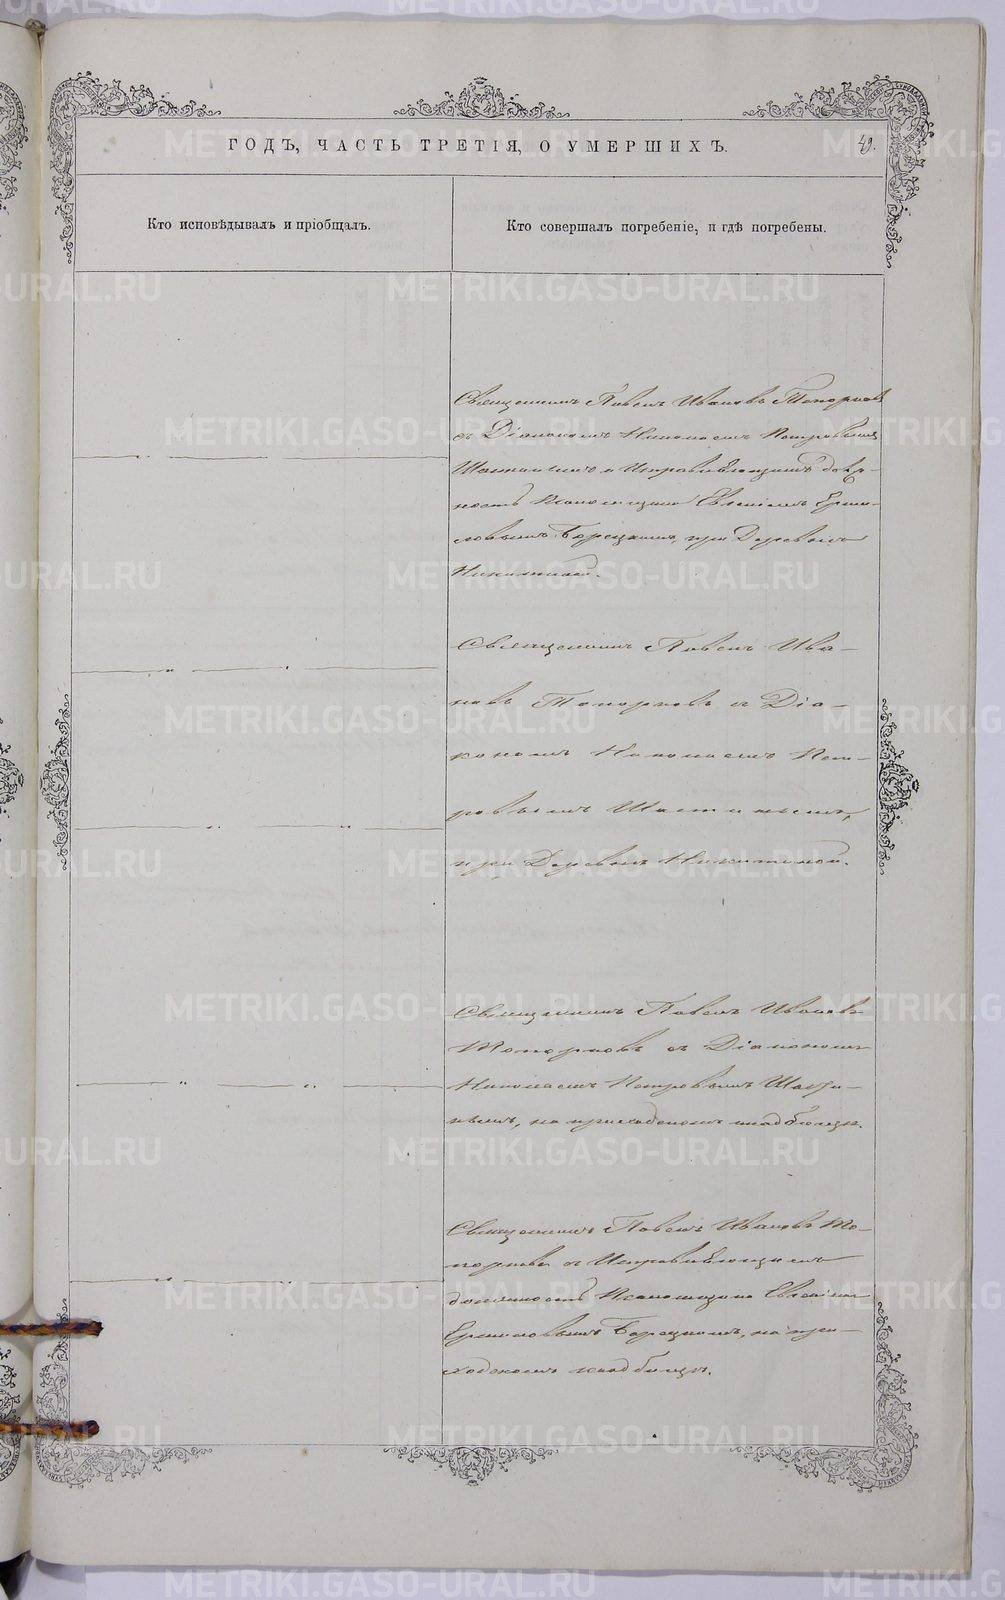 ГОДЪ, ЧАСТЬ ТРЕТІЯ, О УМЕРШИХЪ.
49.
Кто исповѣдывалъ и пріобщалъ.
Кто совершалъ погребеніе, и гдѣ погребены.
Священникъ Павелъ Ивановъ Топорковъ
съ Діакономъ Николаемъ Петровымъ
и Исправляющимъ долж-
ность Псаломщика Евгеніемъ Ерми-
ловымъ Борецкимъ, при Деревнѣ
Никитиной.
Священникъ Павелъ Ива-
новъ Топорковъ съ Діа-
кономъ Николаемъ Пет-
ровымъ
при Деревнѣ Никитиной.
Священникъ Павелъ Ивановъ
Топорковъ съ Діакономъ
Николаемъ Петровымъ
на приходскомъ кладбищѣ.
Священникъ Павелъ Ивановъ То-
порковъ съ Исправляющимъ
должность Псаломщика Евгеніемъ
Ермиловымъ Борецкимъ, на при-
ходскомъ кладбищѣ.
METRIKI.GASO-URAL.RU